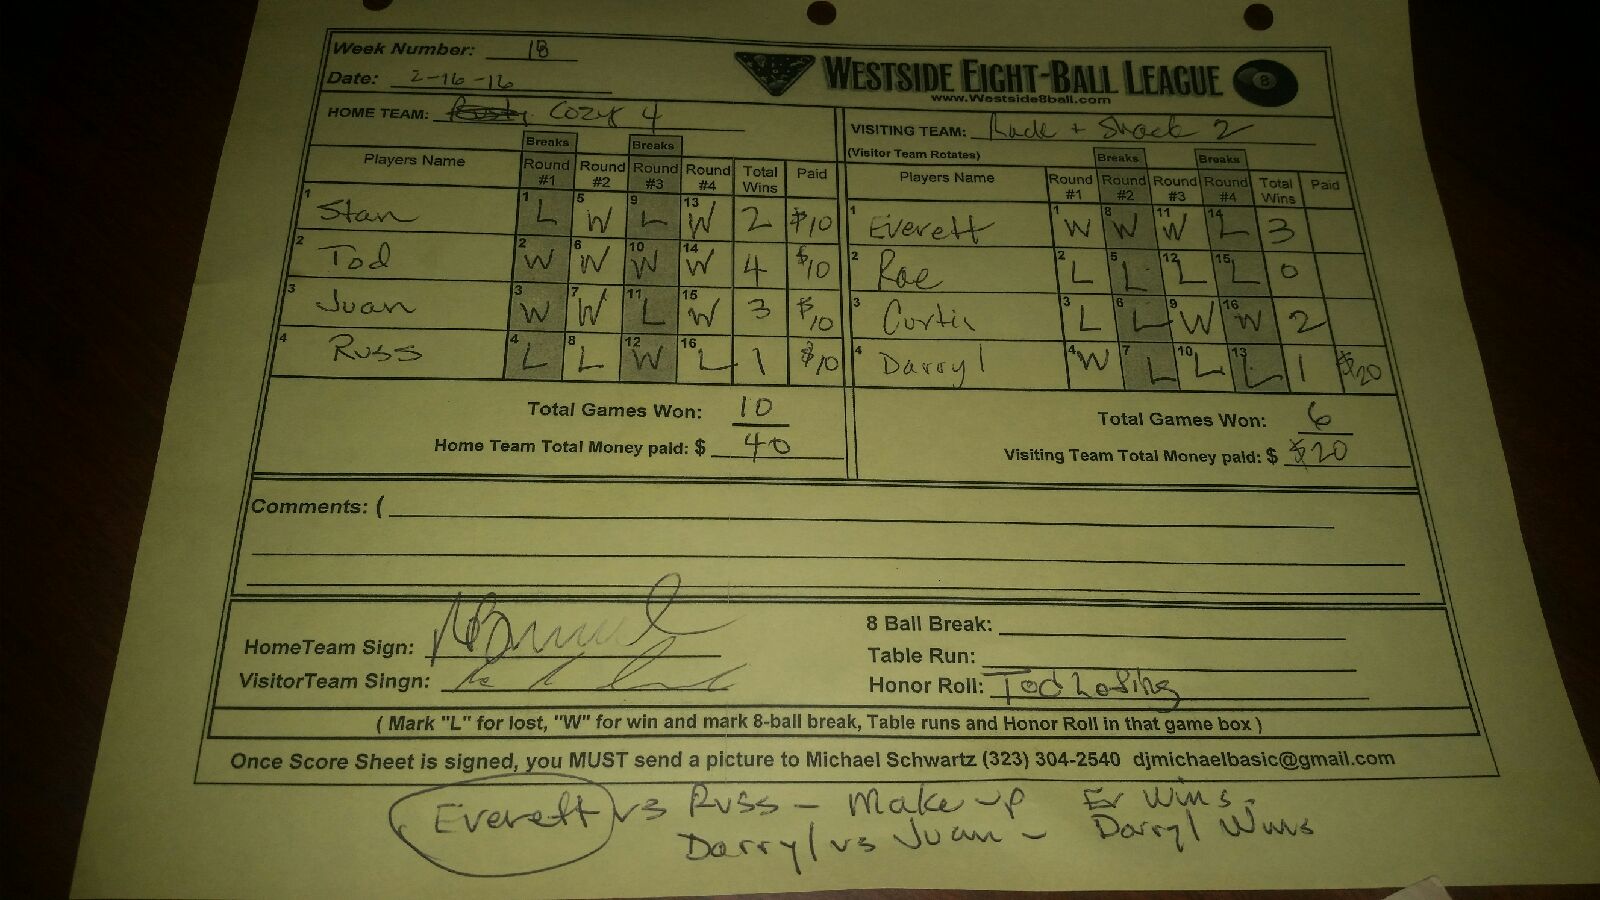 Week Number: 18
Date: 2-16-16
WESTSIDE EIGHT-BALL LEAGUE
8
www.Westside8ball.com
HOME TEAM: Cozy 4
VISITING TEAM: Rack + Shack 2
(Visitor Team Rotates)
Breaks Breaks
Players Name Round #1 Round #2 Round #3 Round #4 Total Wins Paid
1 Stan 1 L 5 W 9 L 13 W 2 $10
2 Tod 2 W 6 W 10 W 14 W 4 $10
3 Juan 3 W 7 W 11 L 15 W 3 $10
4 Russ 4 L 8 L 12 W 16 L 1 $10
Total Games Won: 10
Home Team Total Money paid: $ 40
Breaks Breaks
Players Name Round #1 Round #2 Round #3 Round #4 Total Wins Paid
1 Everett 1 W 8 W 11 W 14 L 3
2 Rae 2 L 5 L 12 L 15 L 0
3 Curtis 3 L 6 L 9 W 16 W 2
4 Darryl 4 W 7 L 10 L 13 L 1 $20
Total Games Won: 6
Visiting Team Total Money paid: $ $20
Comments: (
HomeTeam Sign:
VisitorTeam Singn:
8 Ball Break:
Table Run:
Honor Roll: Tod
( Mark "L" for lost, "W" for win and mark 8-ball break, Table runs and Honor Roll in that game box )
Once Score Sheet is signed, you MUST send a picture to Michael Schwartz (323) 304-2540 djmichaelbasic@gmail.com
Everett vs Russ - Make up Ev Wins.
Darryl vs Juan - Darryl Wins